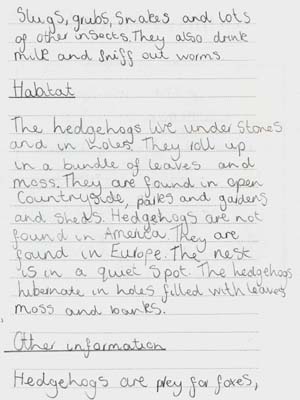 Slugs, grubs, snakes and lots
of other insects. They also drink
milk and sniff out worms.
Habitat
The hedgehogs live under stones
and in holes. They roll up
in a bundle of leaves and
moss. They are found in open
Countryside, parks and gardens
and sheds. Hedgehogs are not
found in America. They are
found in Europe. The nest
is in a quiet spot. The hedgehogs
hibernate in holes filled with leaves
moss and banks.
Other information
Hedgehogs are prey for foxes,